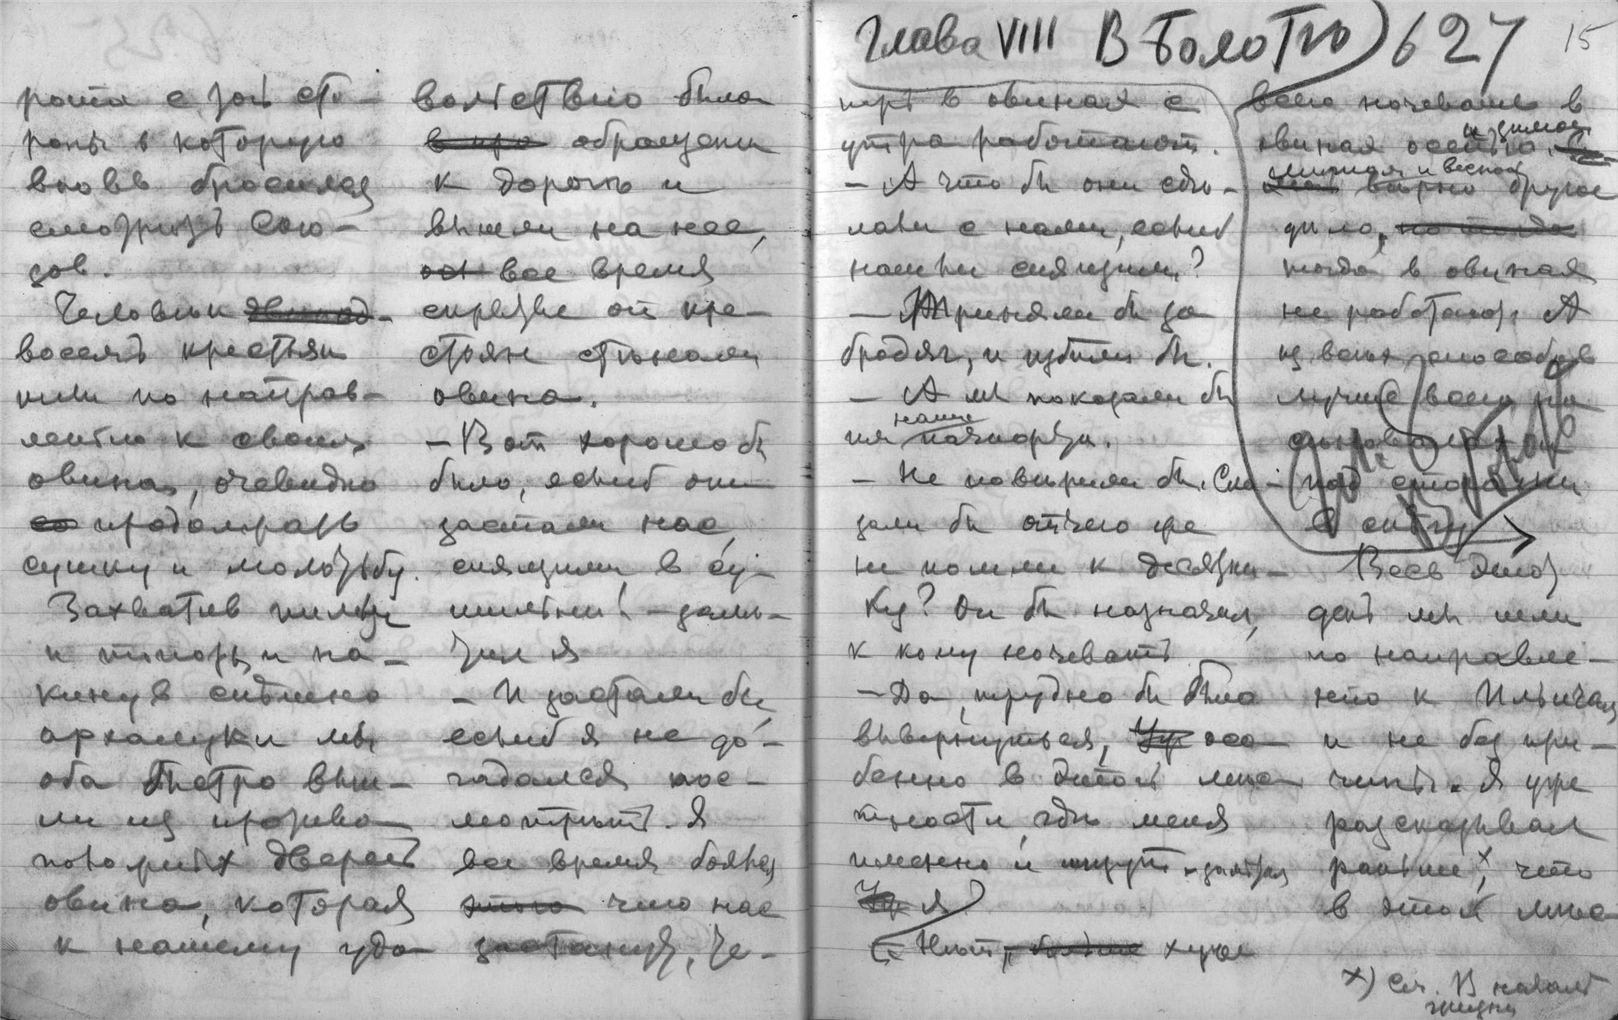 роны с той сто-
роны в которую
вновь бросился
смотреть Сою-
зов.
Человек
восемь крестьян
шли по направ-
лению к своим
овинам, очевидно
продолжать
сушку и молотьбу.
Захватив пилы
и топоры и на-
кинув спешно
армяки мы
оба быстро выш-
ли из
дверей
овина, которая
к нашему удо-
вольствию была
обращена
к дороге и
вышли на нее,
все время
скрытые от кре-
стьян стенами
овина.
– Вот хорошо бы
было, еслиб они
застали нас,
спящими в су-
шильни! – заме-
тил я
– И застали бы,
еслиб я не до-
гадался пос-
мотреть. Я
все время боялся
что нас
застанут. Те-
Глава VIII В болоте 627 15
перь в овинах с
утра работают.
– А что бы они сде-
лали с нами, еслиб
нашли спящими?
– Приняли бы за
бродяг, и избили бы.
– А мы показали бы
им наши паспорта.
– Не поверили бы. Ска-
зали бы отчего же
не пошли к десятни-
ку? Он бы назначил,
к кому ночевать
– Да, трудно бы было
вывернуться, осо-
бенно в этой мест-
ности, где меня
именно и ищут
я
– Нет, хуже
всего ночевать в
овинах осенью и зимою.
и весной другое
дело,
тогда в овинах
не работают. А
из всех способов
лучше всего на
под
в снегу
Весь этот
день мы шли
по направле-
нию к Ильичам
и не без при-
чины. Я уже
рассказывал
раньше, x что
в этой мест-
x) См. В начале
жизни